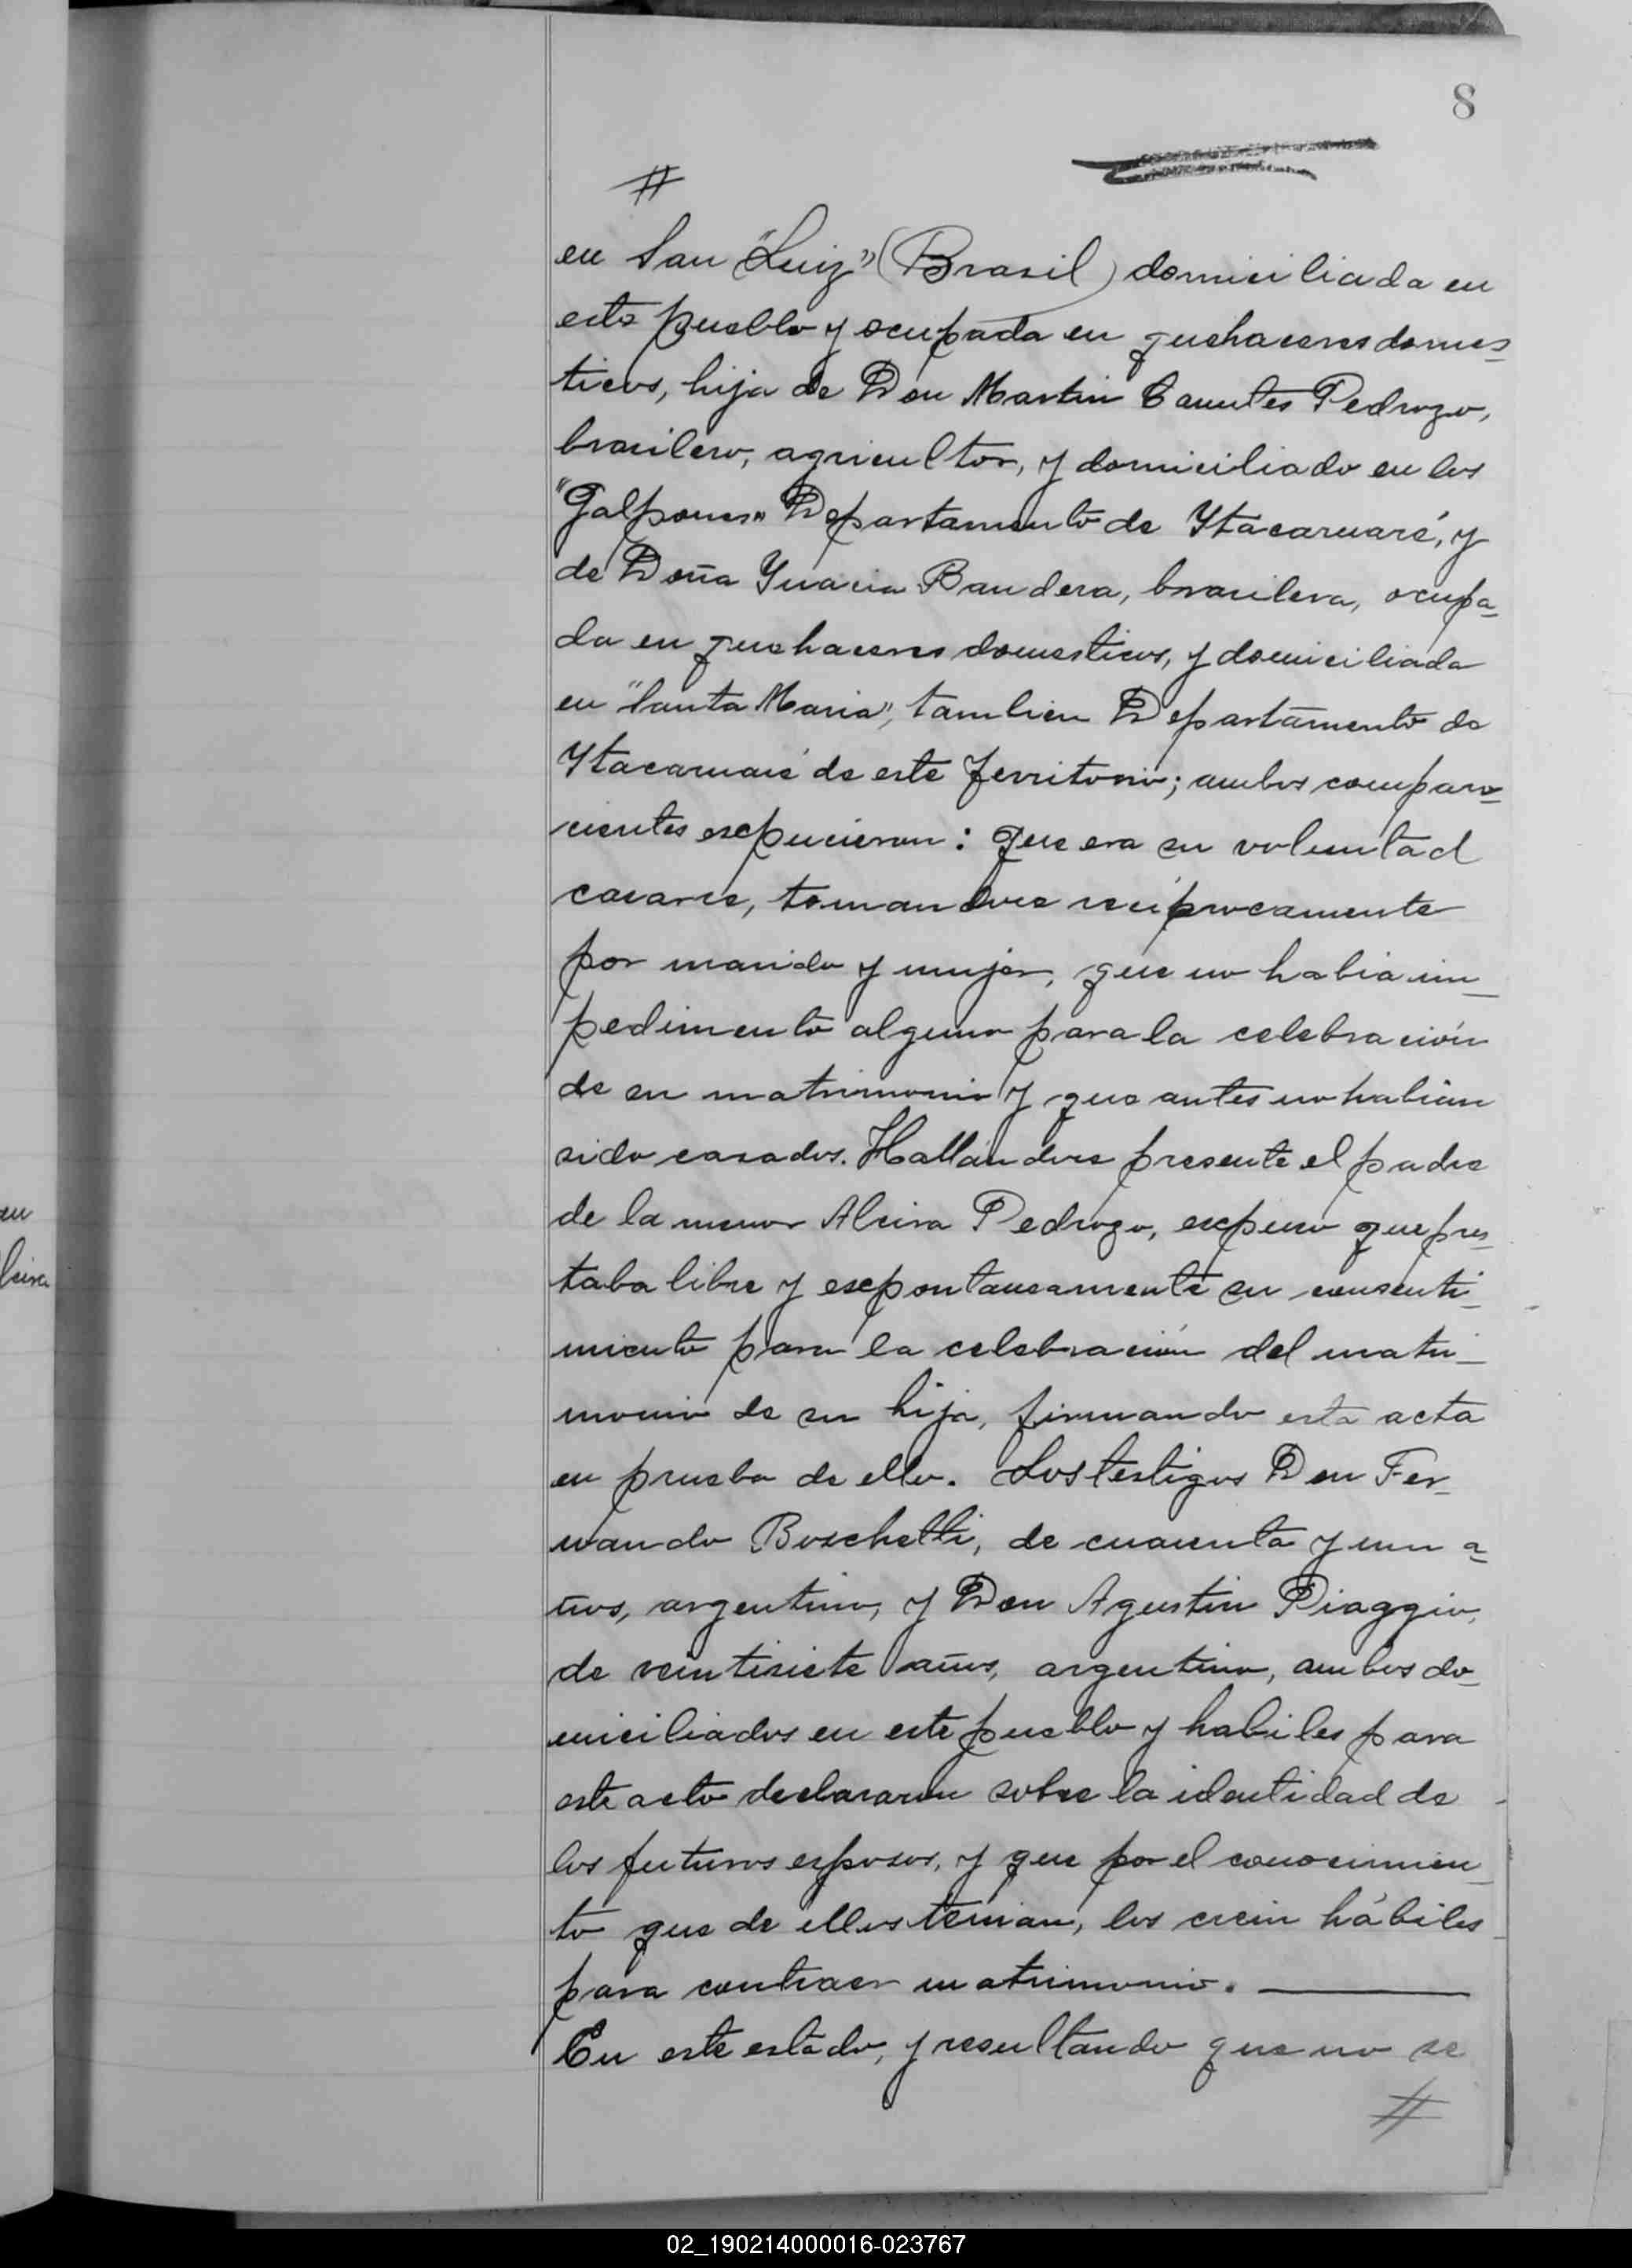 8
#
en San "Luiz" (Brasil) domiciliada en
este pueblo y ocupada en quehaceres domes-
ticos, hija de Don Martin Pedrozo,
brasilero, agricultor, y domiciliado en los
"Galpones" Departamento de Ytacaruaré, y
de Doña Ynacia Bandera, brasilera, ocupa-
da en quehaceres domesticos, y domiciliada
en "Santa Maria", tambien Departamento de
Ytacaruaré de este Territorio; ambos compare-
cientes expucieron: Que era su voluntad
casarse, tomandose reciprocamente
por marido y mujer, que no habia im-
pedimento alguno para la celebración
de su matrimonio y que antes no habian
sido casados. Hallándose presente el padre
de la menor Alcira Pedrozo, expuso que pres-
taba libre y expontaneamente su consenti-
miento para la celebración del matri-
monio de su hija, firmando esta acta
en prueba de ello. Los testigos Don Fer-
nando Boschetti, de cuarenta y un a-
ños, argentino, y Don Agustin Piaggio,
de veintisiete años, argentino, ambos do-
miciliados en este pueblo y habiles para
este acto declararon sobre la identidad de
los futuros esposos, y que por el conocimien-
to que de ellos tenian, los crein hábiles
para contraer matrimonio.
En este estado, y resultando que no se
#
en
02_190214000016-023767